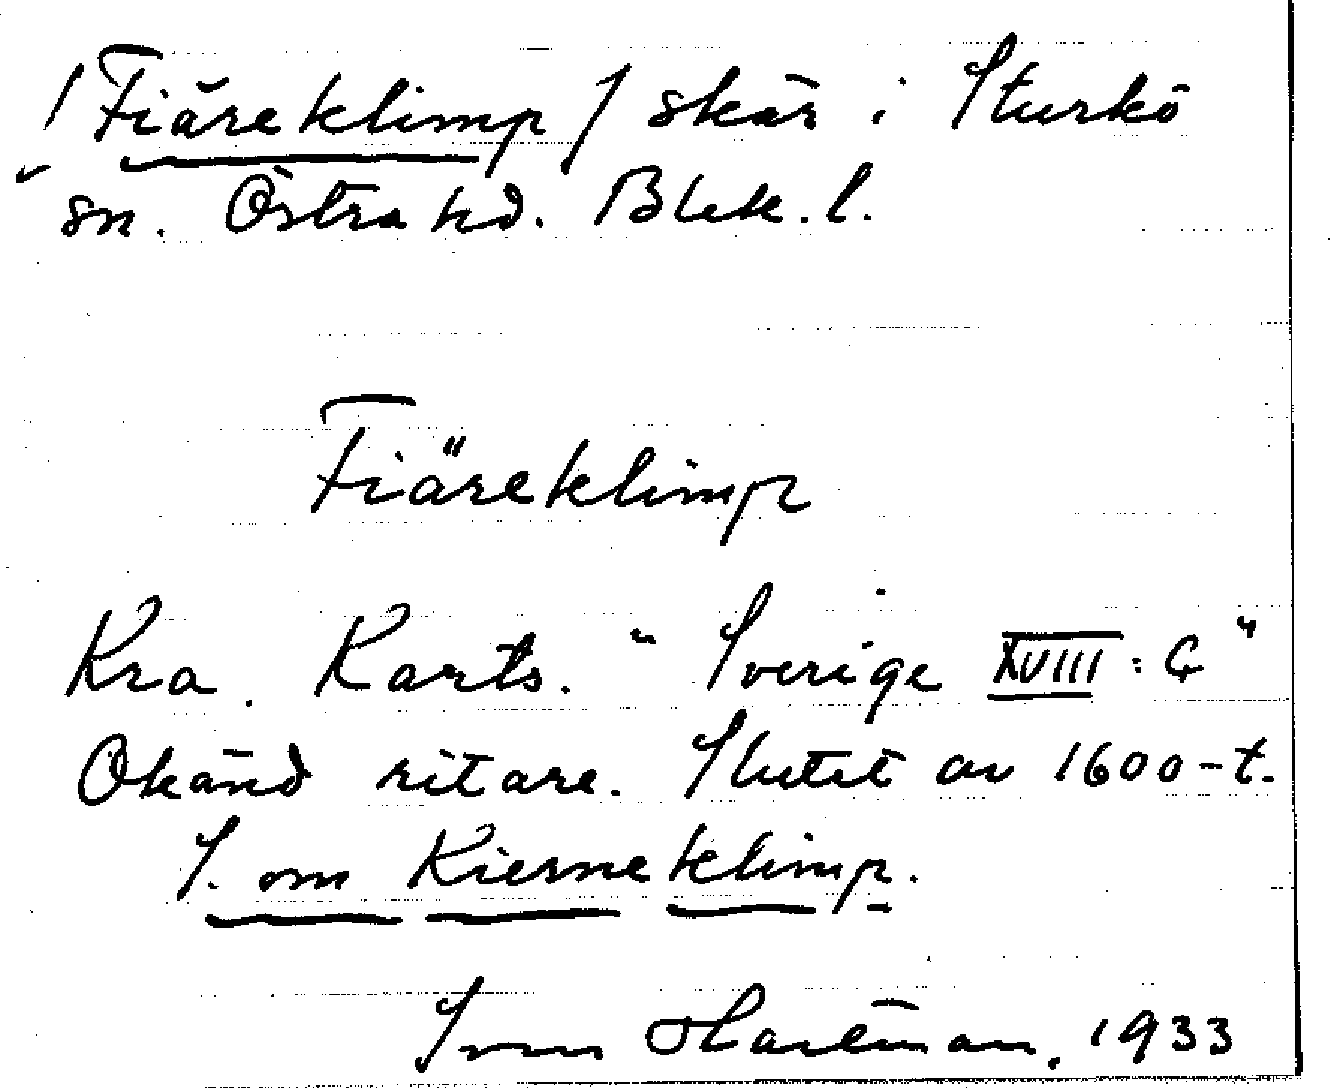 /Fiäreklimp/ skär i Sturkö
sn. Östra hd. Blek. l.
Fiäreklimp
Kra. Karts. "Sverige XVIII: G"
Okänd ritare. Slutet av 1600-t.
S. om Kierneklimp.
Sven Hartman. 1933